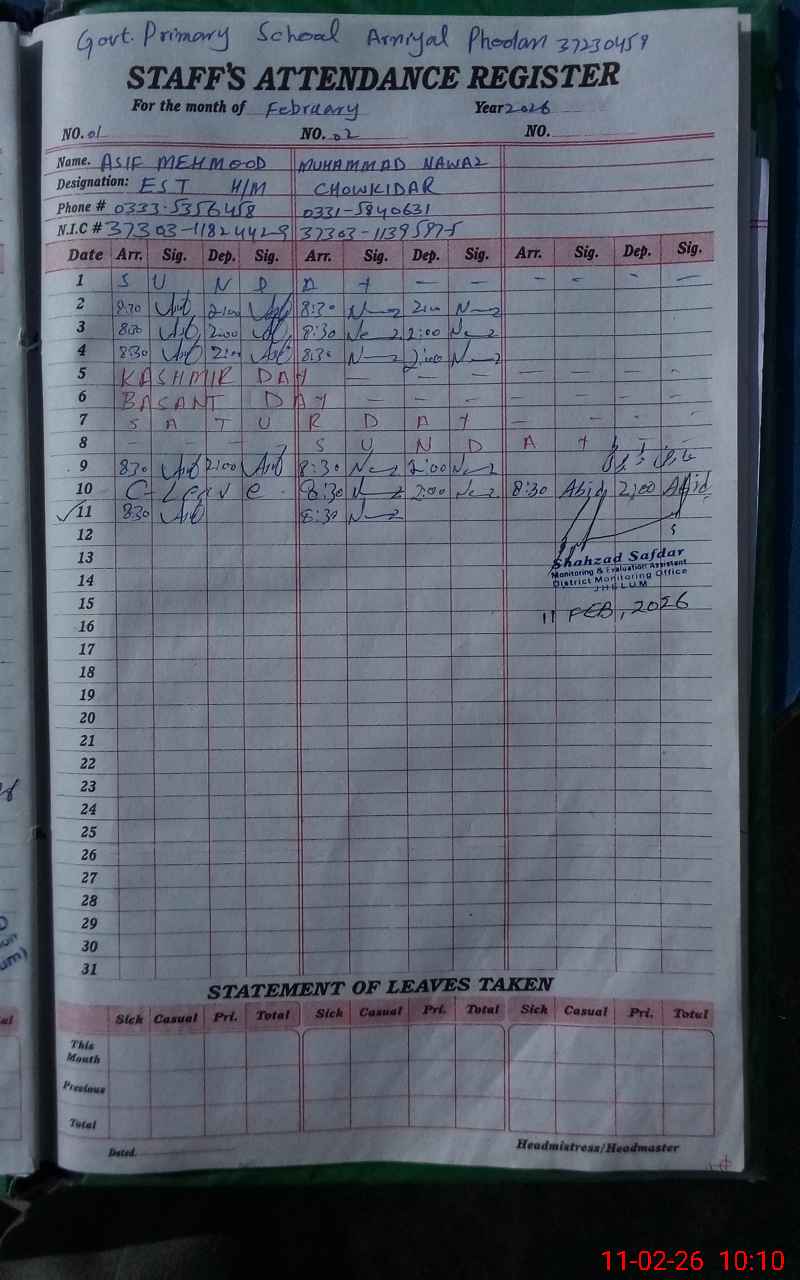 Govt. Primary School Arniyal Phodan 37230459
STAFF'S ATTENDANCE REGISTER
For the month of February Year 2026
NO. 01 NO. 02 NO.
Name. ASIF MEHMOOD MUHAMMAD NAWAZ
Designation: EST H/M CHOWKIDAR
Phone # 0333-5356458 0331-5840631
N.I.C # 37303-1182442-9 37303-1139587-5
Date Arr. Sig. Dep. Sig. Arr. Sig. Dep. Sig. Arr. Sig. Dep. Sig.
1 S U N D A Y — — — — — —
2 8:30 2:00 8:30 2:00
3 8:30 2:00 8:30 2:00
4 8:30 2:00 8:30 2:00
5 KASHMIR DAY — — — — — — —
6 BASANT DAY — — — — — — —
7 S A T U R D A Y — — — —
8 — — — — S U N D A Y
9 8:30 2:00 8:30 2:00
10 C-Leave 8:30 2:00 8:30 Abid 2:00 Abid
11 8:30 8:30
12
13
14
15
16
17
18
19
20
21
22
23
24
25
26
27
28
29
30
31
Shahzad Safdar
Monitoring & Evaluation Assistant
District Monitoring Office
JHELUM
11 FEB, 2026
STATEMENT OF LEAVES TAKEN
Sick Casual Pri. Total Sick Casual Pri. Total Sick Casual Pri. Total
This Month
Previous
Total
Dated. Headmistress/Headmaster
11-02-26 10:10